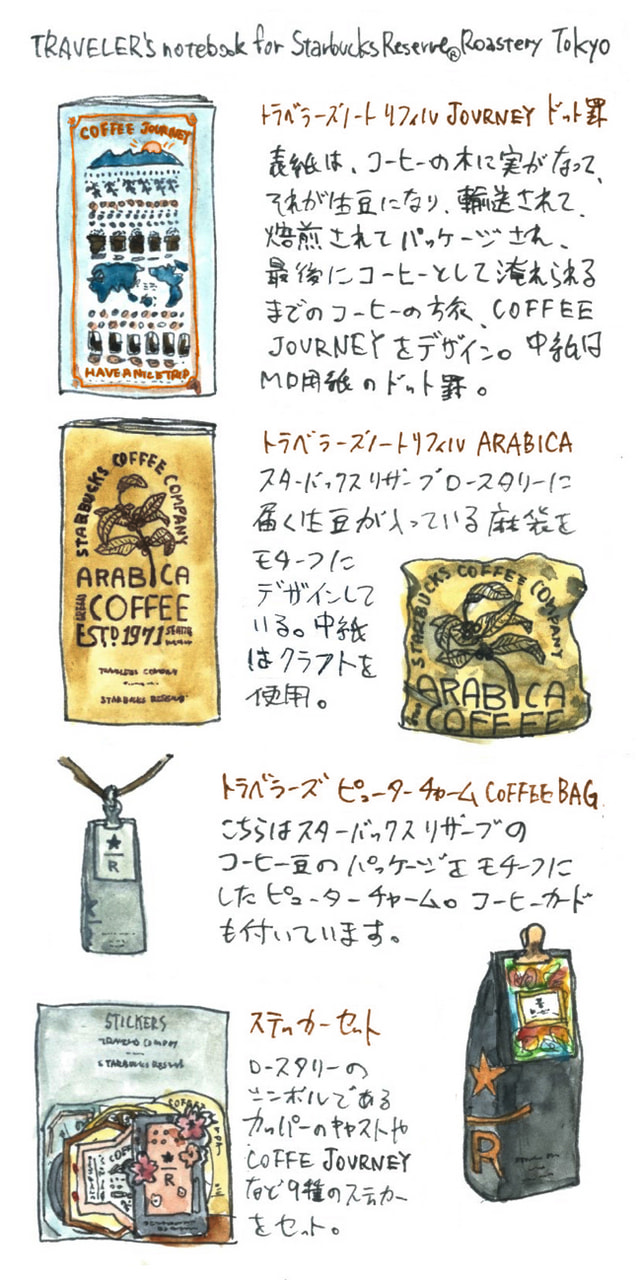 TRAVELER's notebook for Starbucks Reserve® Roastery Tokyo
トラベラーズノート リフィル JOURNEY ドット罫
表紙は、コーヒーの木に実がなって、
それが生豆になり、輸送されて、
焙煎されてパッケージされ、
最後にコーヒーとして淹れられる
までのコーヒーの旅、COFFEE
JOURNEYをデザイン。中紙は
MD用紙のドット罫。
COFFEE JOURNEY
HAVE A NICE TRIP
トラベラーズノートリフィル ARABICA
スターバックス リザーブ ロースタリーに
届く生豆が入っている麻袋を
モチーフに
デザインして
いる。中紙
はクラフトを
使用。
STARBUCKS COFFEE COMPANY
ARABICA
COFFEE
ESTD 1971
TRAVELERS COMPANY
STARBUCKS RESERVE
STARBUCKS COFFEE COMPANY
ARABICA
COFFEE
トラベラーズ ピューターチャーム COFFEE BAG
こちらはスターバックス リザーブの
コーヒー豆のパッケージをモチーフに
したピューターチャーム。コーヒーカード
も付いています。
★
R
★
R
ステッカーセット
ロースタリーの
シンボルである
カッパーのキャストや
COFFE JOURNEY
など9種のステッカー
をセット。
STICKERS
TRAVELERS COMPANY
STARBUCKS RESERVE
★
R